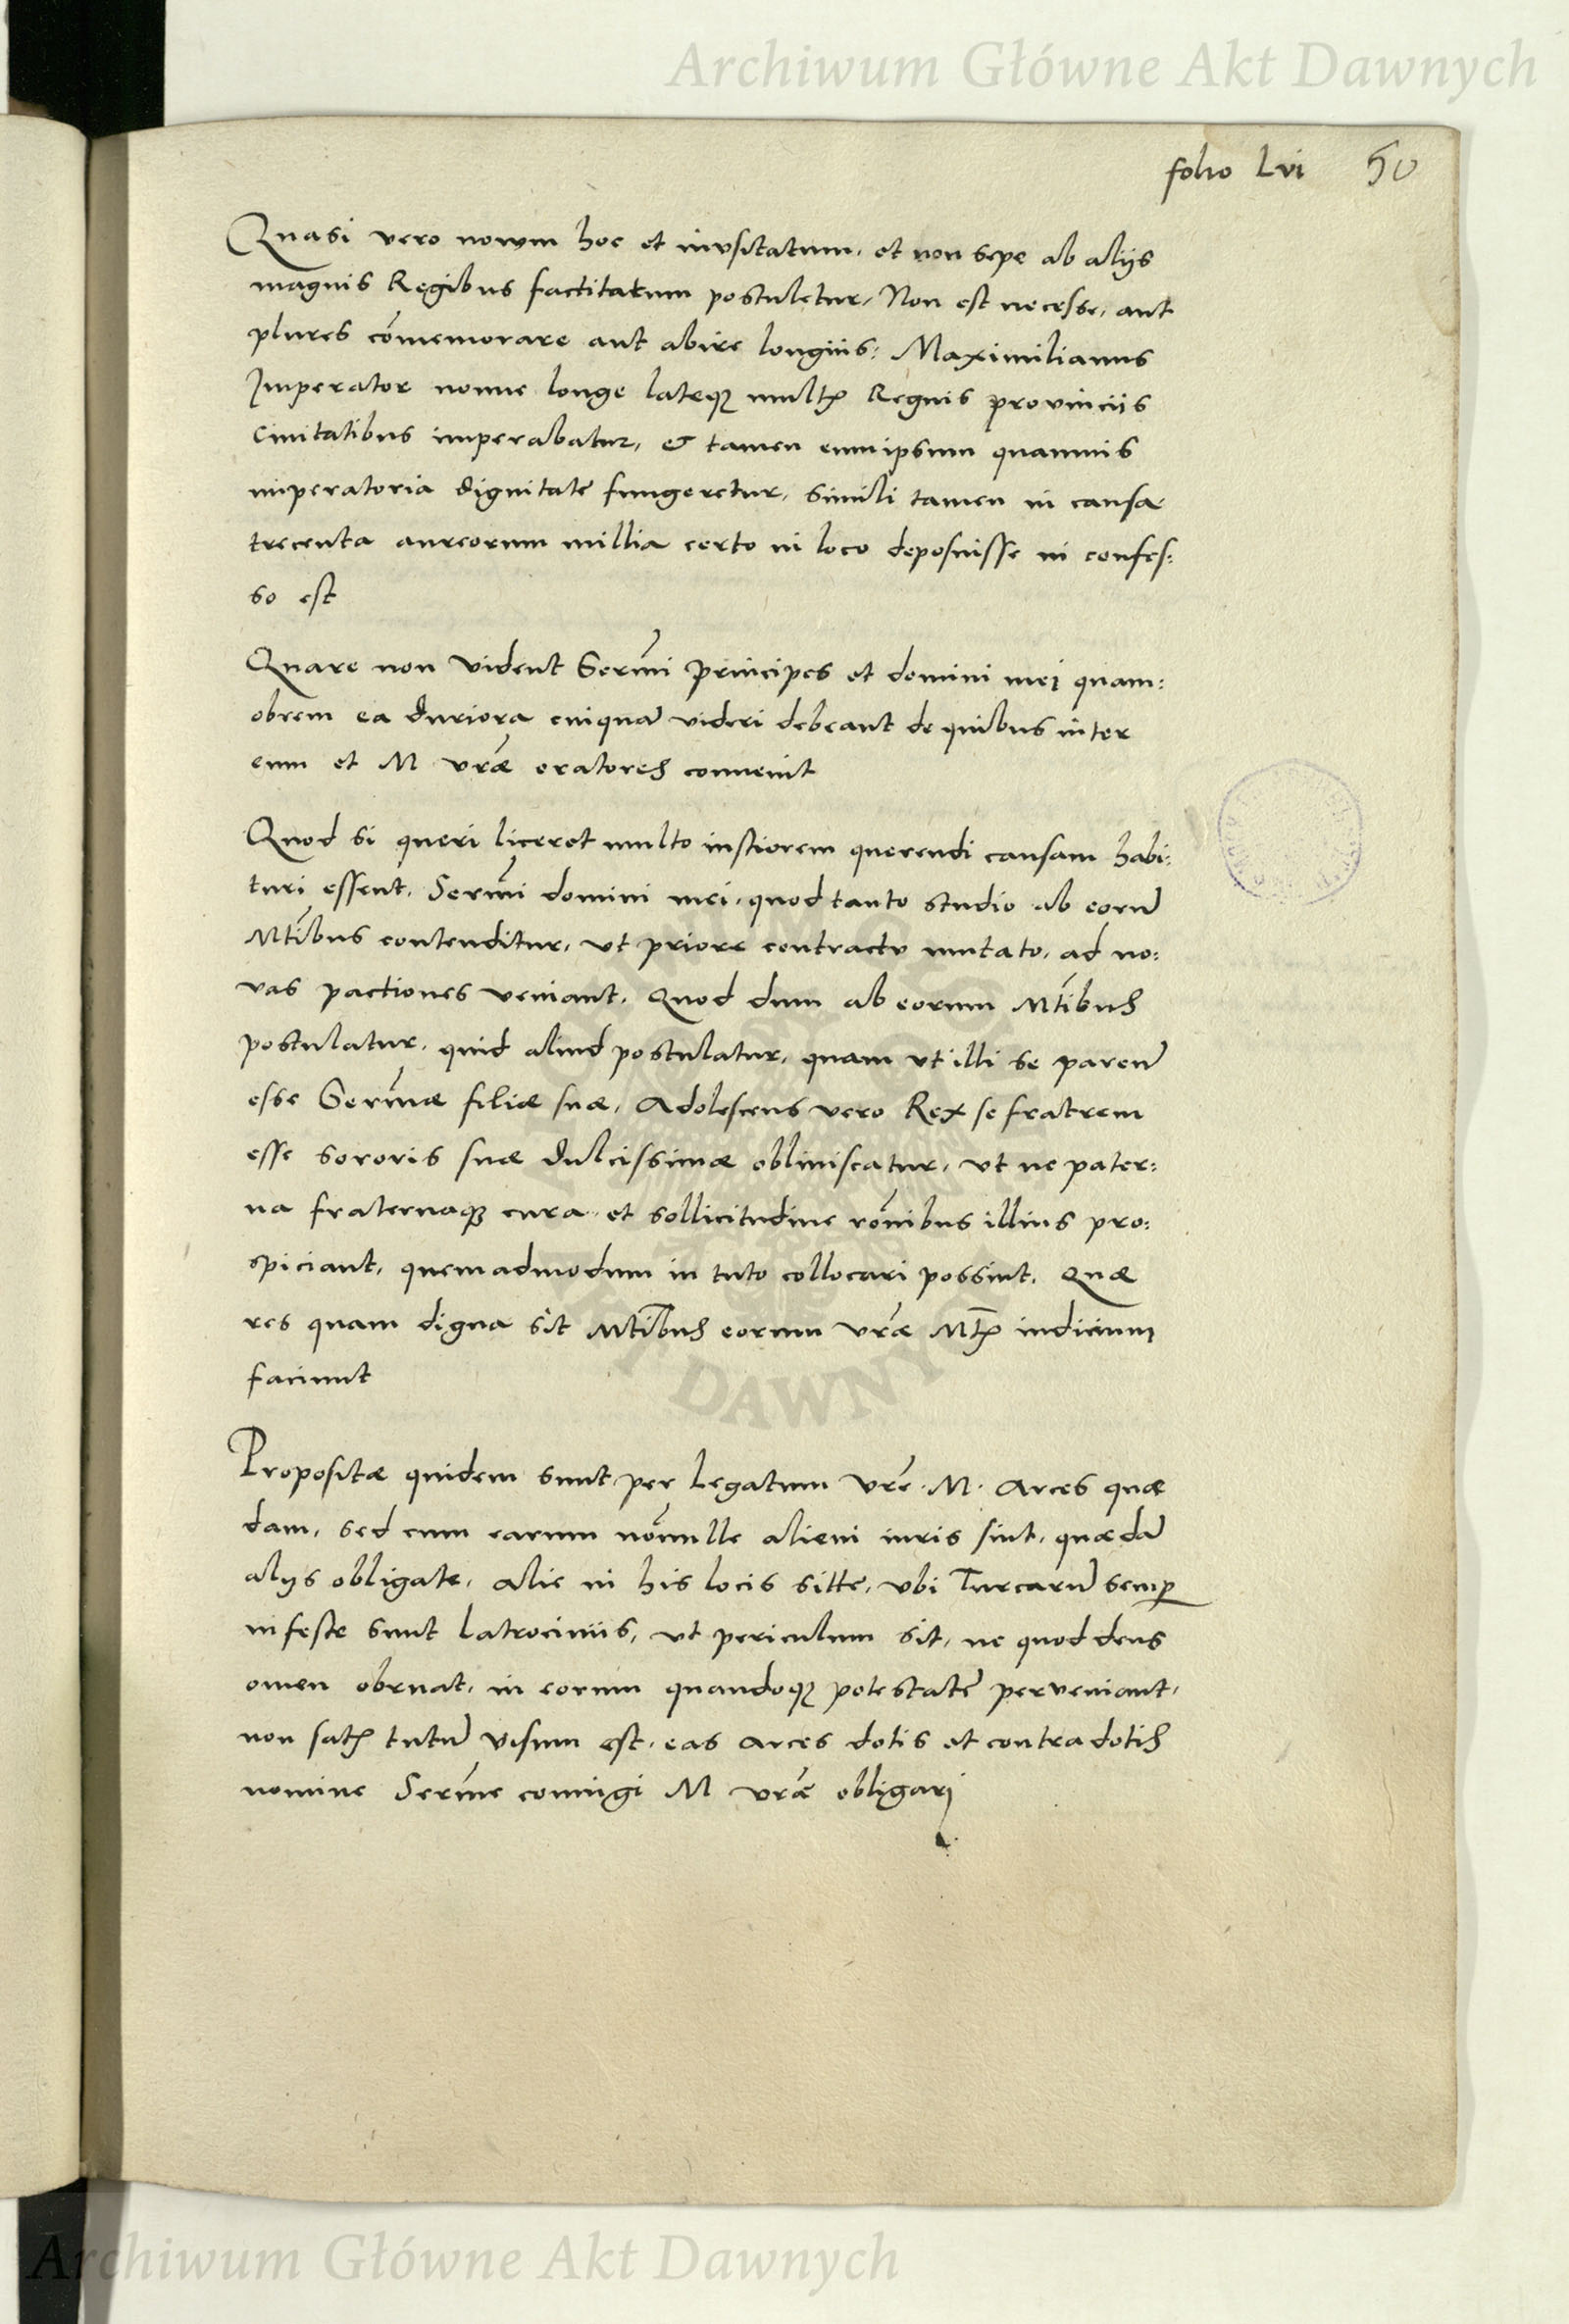 Archiwum Główne Akt Dawnych
folio Lvi 50
Quasi vero novum hoc et invsitatum, et non sepe ab alijs
magnis Regibus factitatum postuletur, Non est necesse, aut
plures cōmemorare aut abire longius: Maximilianus
Imperator nonne longe lateqꝫ multꝭ Regnis provinciis
Ciuitatibus imperabatur, & tamen eumipsum quamuis
imperatoria dignitate fungeretur, simili tamen in causa
trecenta aureorum millia certo in loco deposuisse in confes:
so est
Quare non vident Sermi principes et domini mei quam:
obrem ea duriora cuiquā videri debeant de quibus inter
eum et M vrae oratores convenit
Quod si queri liceret multo iustiorem querendi causam habi:
turi essent, Sermi domini mei, quod tanto studio ab eorū
Mtibus contenditur, vt priore contractv mutato, ad no:
vas pactiones veniant, Quod dum ab eorum Mtibus
postulatur, quid aliud postulatur, quam vt illi se parenē
esse Sermae filiae suae, Adolescens vero Rex se fratrem
esse sororis suae dulcissimae obliuiscatur, vt ne pater:
na fraternaqꝫ cura et sollicitudine rōnibus illius pro:
spiciant, quemadmodum in tuto collocari possint, Quae
res quam digna sit Mtibus eorum vrae Mtꝭ iudicium
faciunt
Propositae quidem sunt per Legatum vre M. Arces quae
dam, sed cum earum nōnulle alieni iuris sint, quaedā
alijs obligate, alie in his locis sitte, vbi Turcarū semꝑ
infeste sunt Latrociniis, vt periculum sit, ne quod deus
omen obruat, in eorum quandoqꝫ potestatē perveniant,
non satꝭ tutū visum est, eas arces dotis et contradotis
nomine Serme coniugi M vrae obligarj
DAWNYCH
Archiwum Główne Akt Dawnych